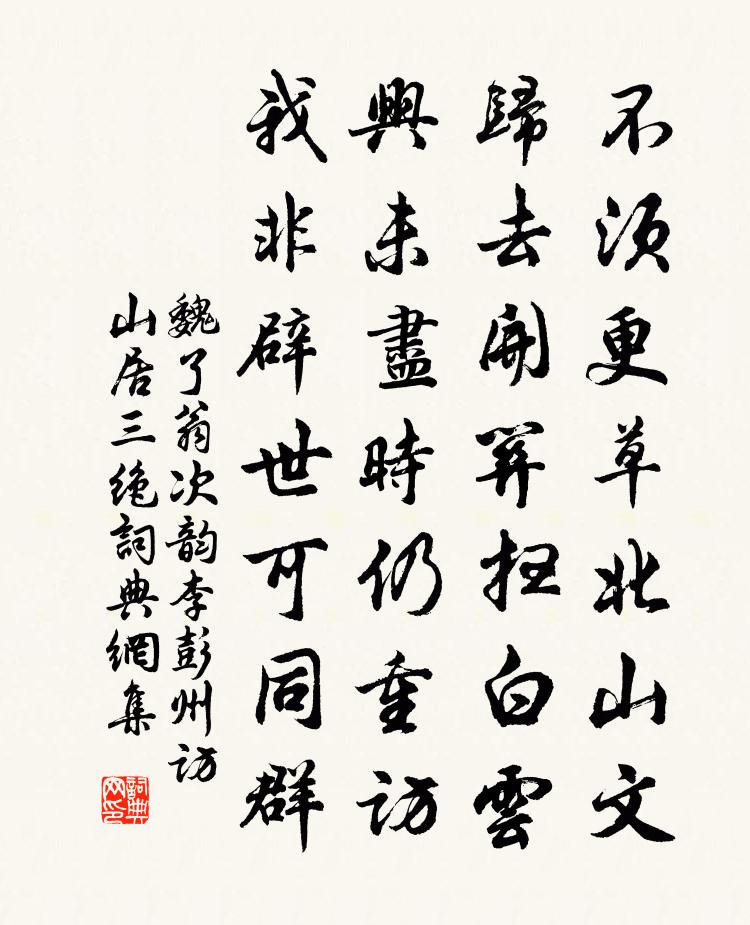 不須更草北山文
歸去開筭掃白雲
興未盡時仍重訪
我非辟世可同群
魏了翁次韵李彭州訪
山居三绝詞典網集
詞典网印